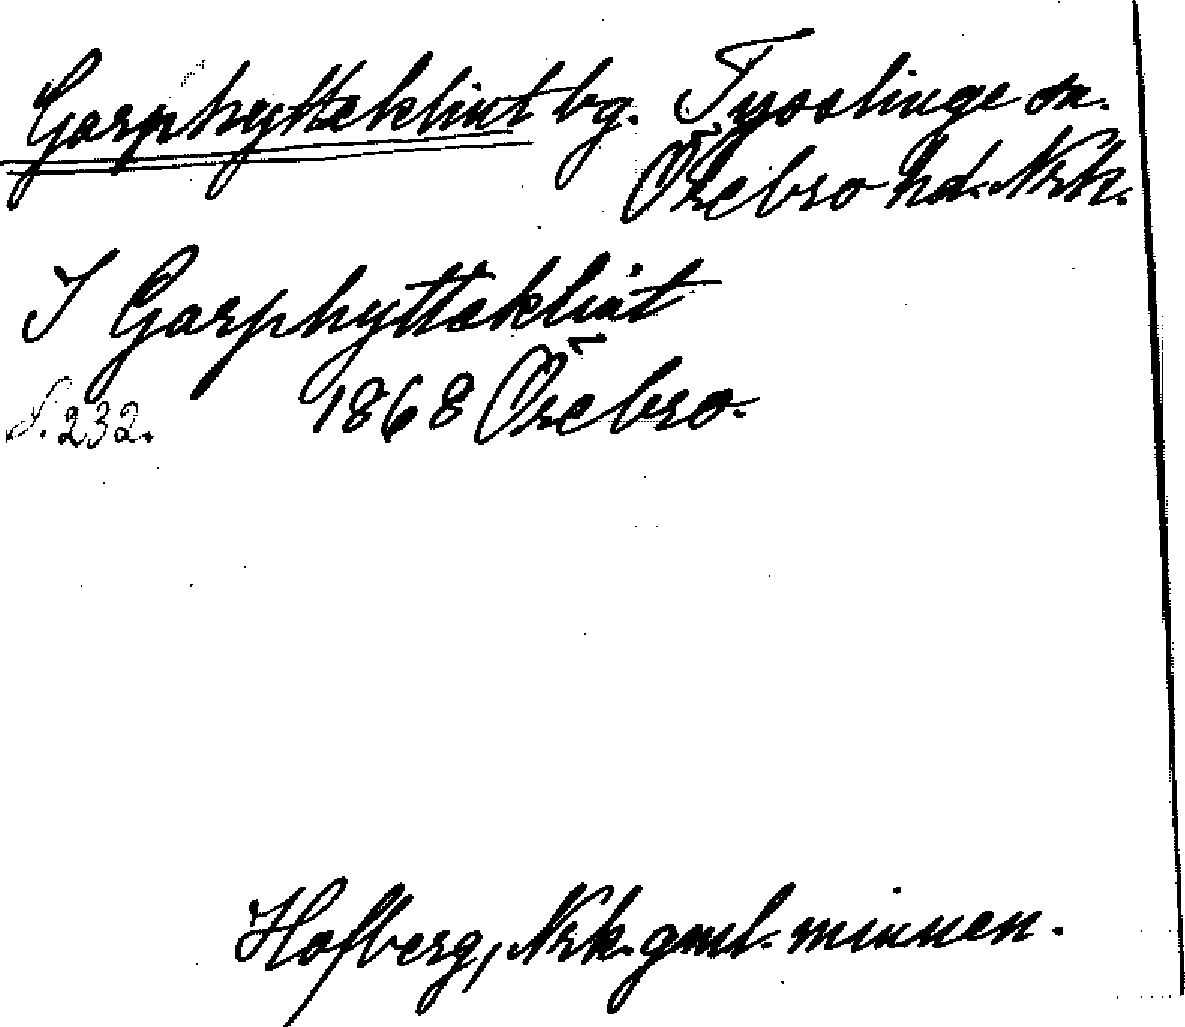 Garphytteklint bg. Tysslinge sn.
Örebro hd. Nrk.
I Garphytteklint
1868 Örebro.
S. 232.
Hofberg, Nrk. gml. minnen.